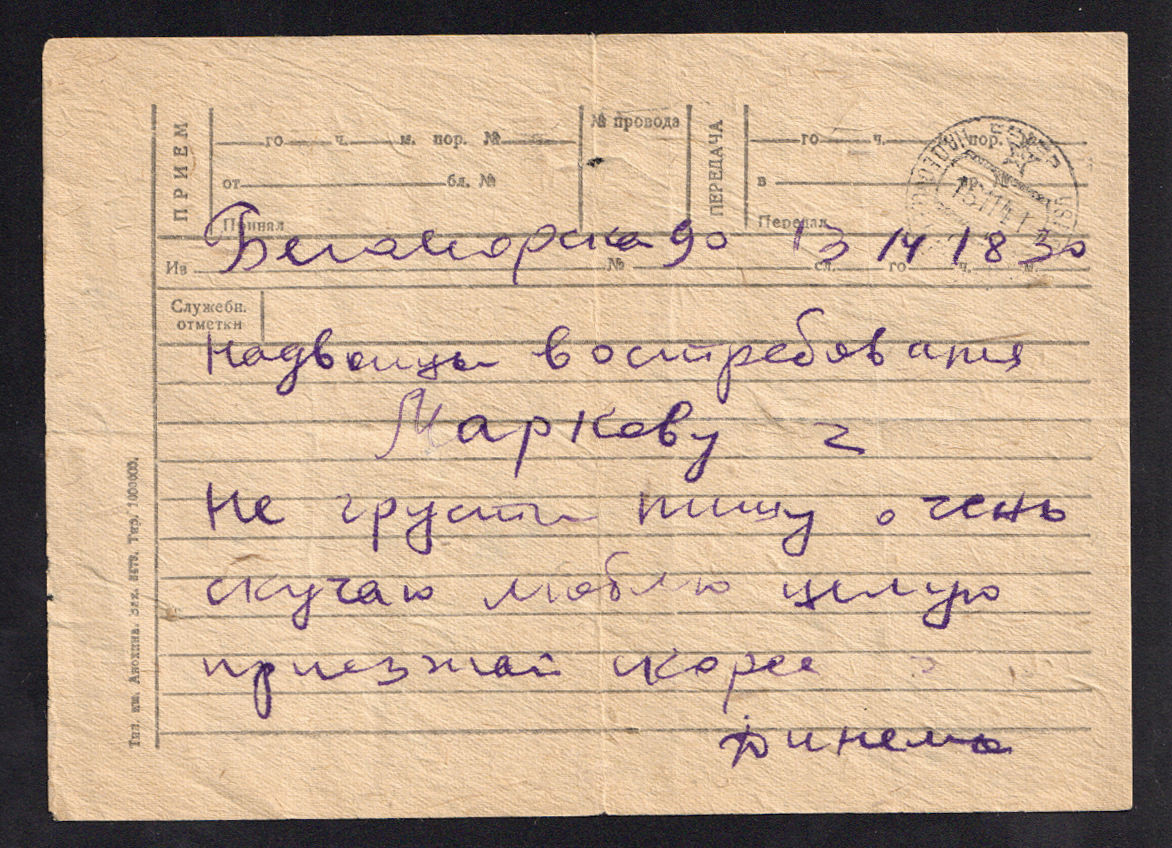 ПРИЕМ
го ч. м. пор. №
№ провода
ПЕРЕДАЧА
го ч. пор.
от бл. №
в
Принял
Передал
Беломорска 90 13 14 18 30
Из № сл. го ч. м.
Служебн.
отметки
Надвоицы востребования
Маркову г
Не грусти пишу очень
скучаю люблю целую
приезжай скорее
Тип. им. Анохина. Зак. Тир. 1000000.